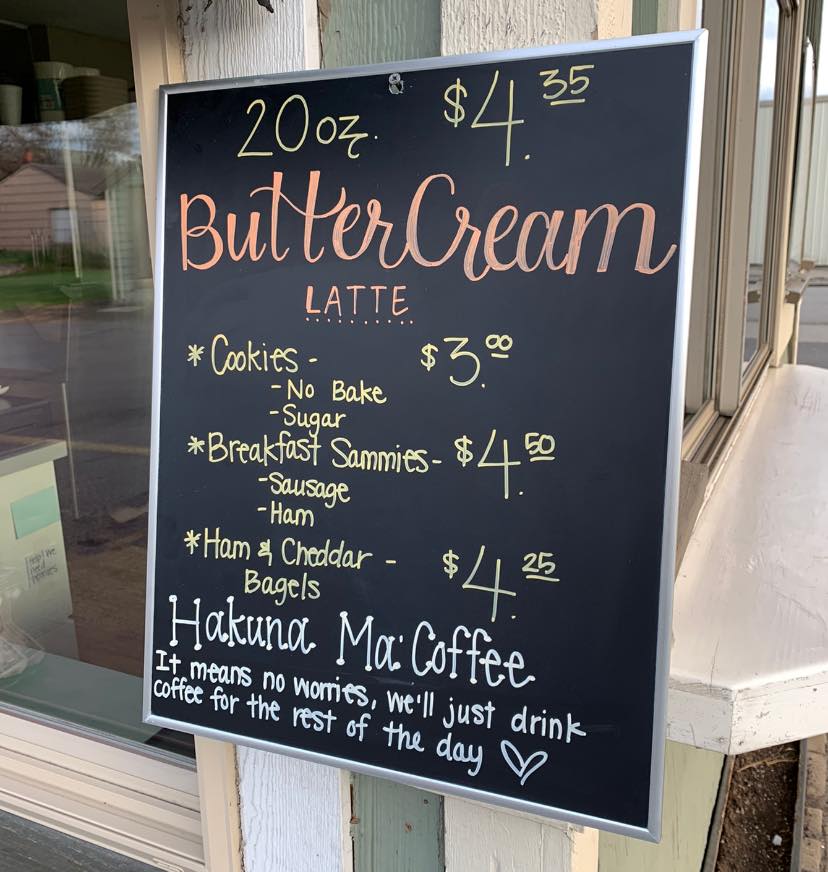 20 oz. $4.35
ButterCream
LATTE
* Cookies - $3.00
- No Bake
- Sugar
* Breakfast Sammies - $4.50
- Sausage
- Ham
* Ham & Cheddar - $4.25
Bagels
Hakuna Ma' Coffee
It means no worries, we'll just drink
coffee for the rest of the day ♡